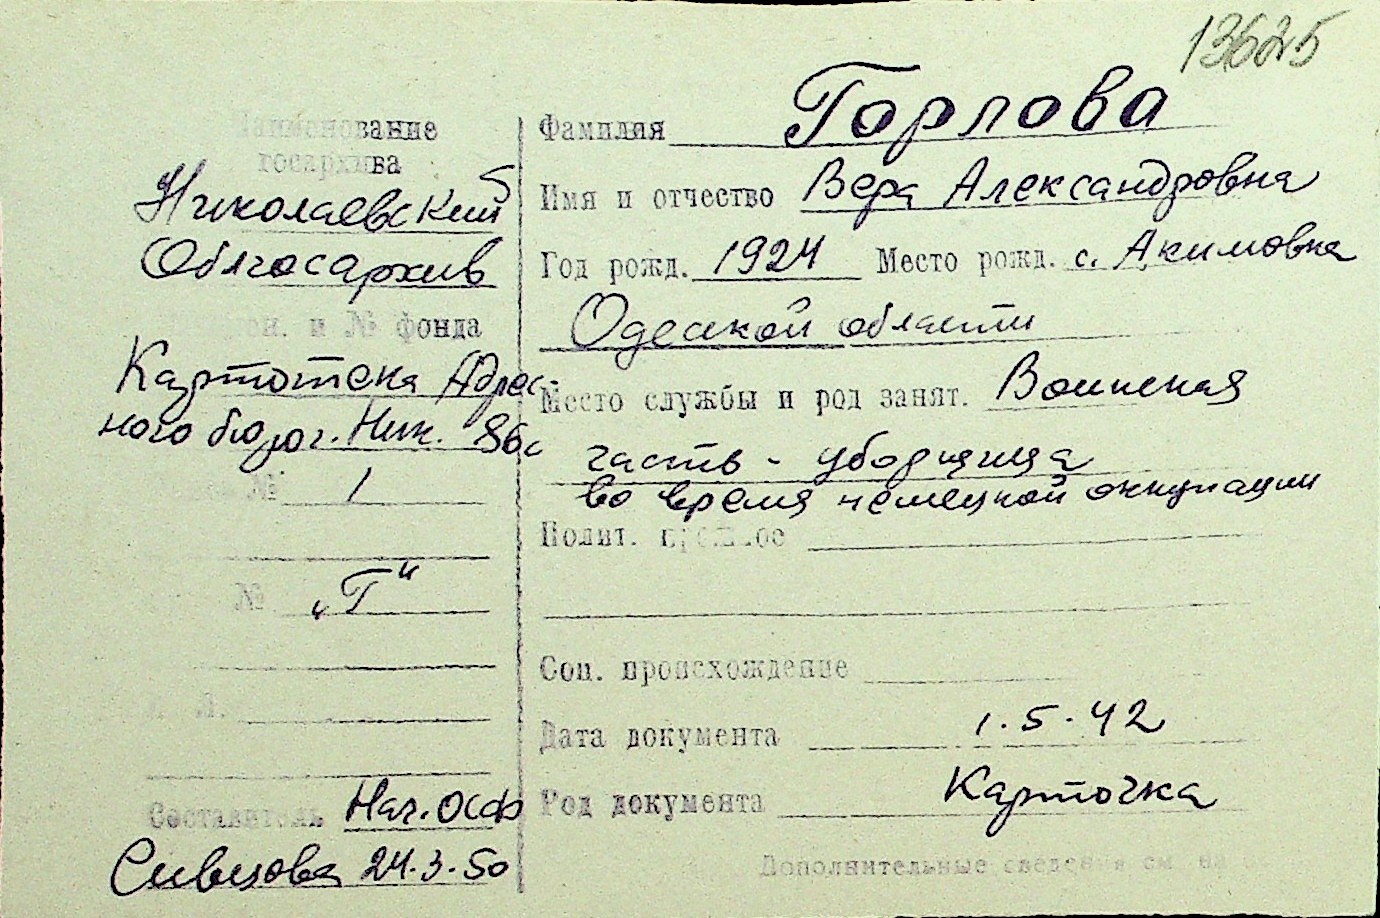 13625
Наименование
госархива
Николаевский
Облгосархив
и № фонда
Картотека Адрес-
ного бюро г. Ник.
№ 1
№ „Г“
Л.
Составитель Нач. ОСФ
Сивцова 24.3.50
Фамилия Горлова
Имя и отчество Вера Александровна
Год рожд. 1924 Место рожд. с. Акимовка
Одесской области
Место службы и род занят. Воинская
часть - уборщица
во время немецкой оккупации
Полит. прошлое
Соц. происхождение
Дата документа 1.5.42
Род документа Карточка
Дополнительные сведения см. на